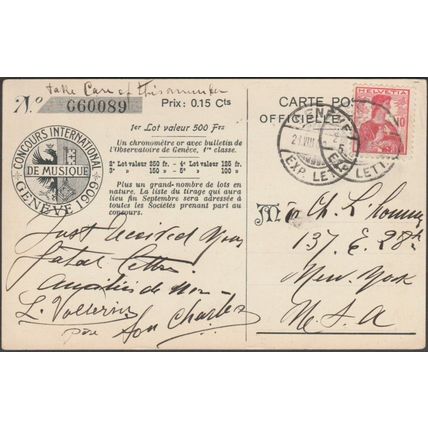 take Care of this number
No G60089
Prix : 0.15 Cts
1er Lot valeur 500 Frs
Un chronomètre or avec bulletin de
l'Observatoire de Genève, 1re classe.
2e Lot valeur 250 fr. – 4e Lot valeur 125 fr.
3e » » 150 » – 5e » » 50 »
Plus un grand nombre de lots en
nature. La liste du tirage qui aura
lieu fin Septembre sera adressée à
toutes les Sociétés prenant part au
concours.
CONCOURS INTERNATIONAL
DE MUSIQUE
GENÈVE 1909
CARTE POS
OFFICIELLE
HELVETIA
10
EXP. LETT.
EXP. LETT.
M
Ch.
137. E. 28th
New York
U.S.A
Just received your
letter
de
L.
Son Charles